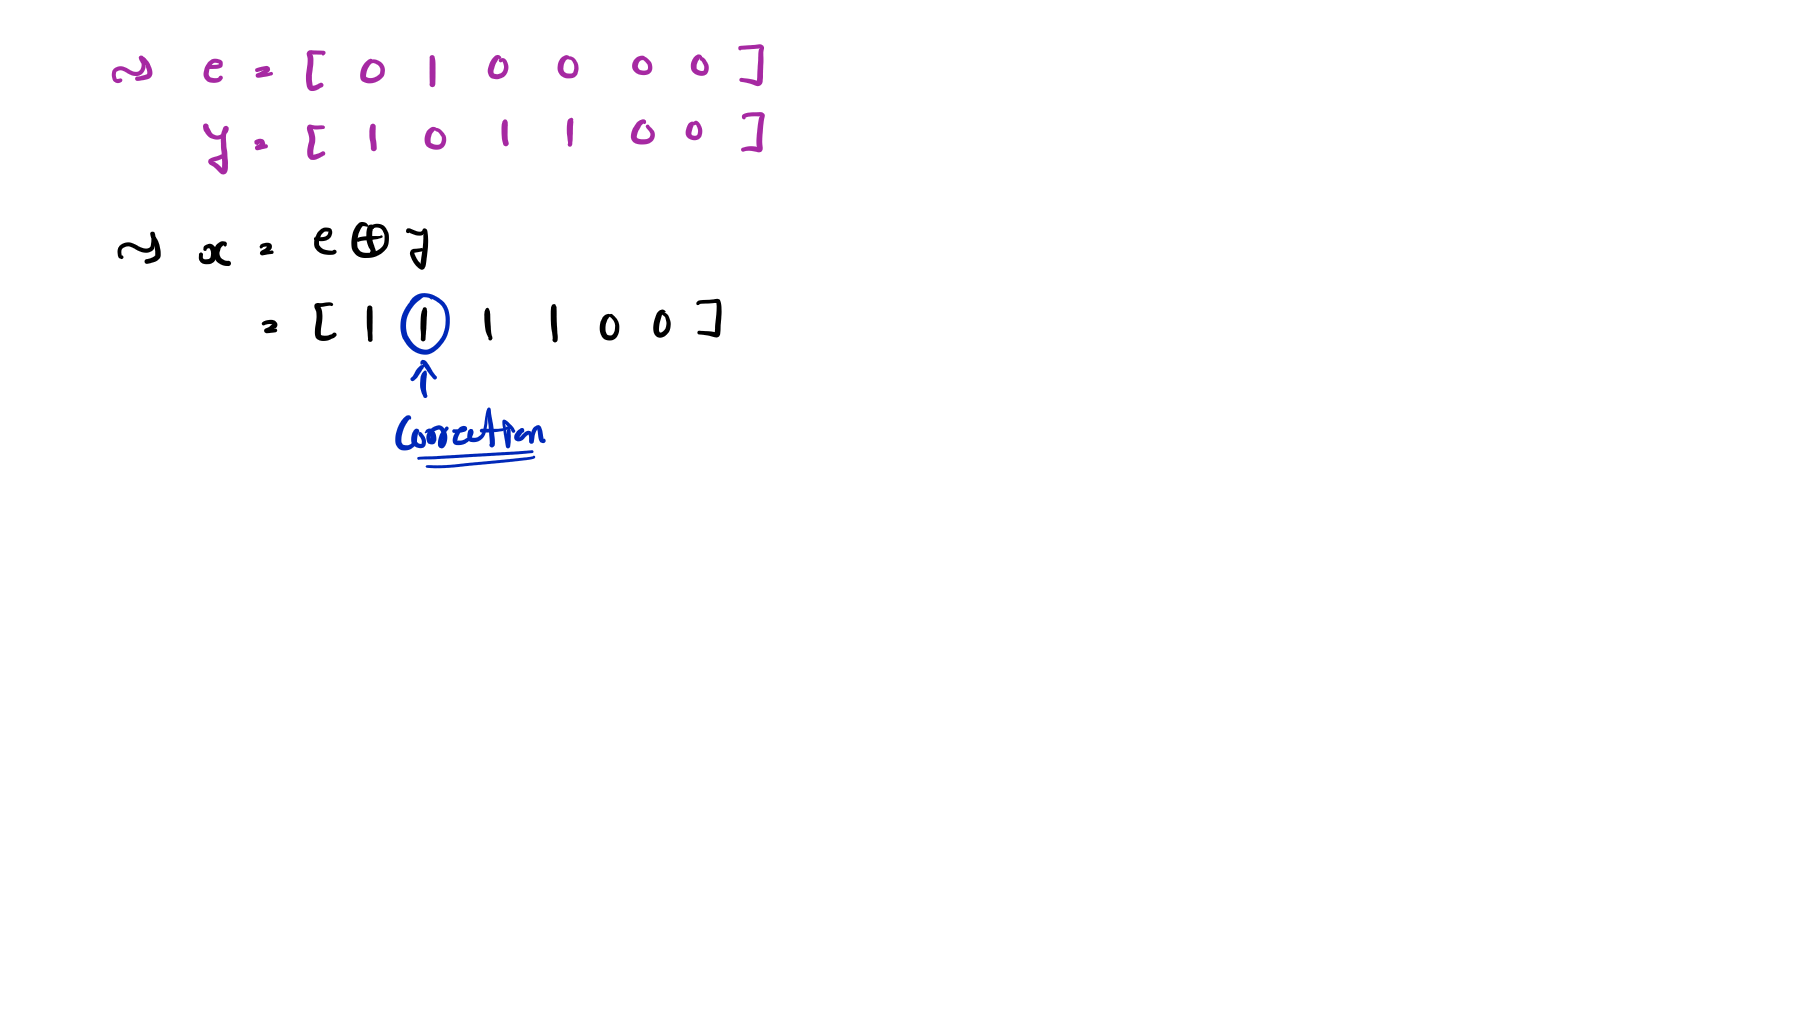 ~> e = [ 0 1 0 0 0 0 ]
y = [ 1 0 1 1 0 0 ]
~> x = e ⊕ y
= [ 1 1 1 1 0 0 ]
↑
Correction